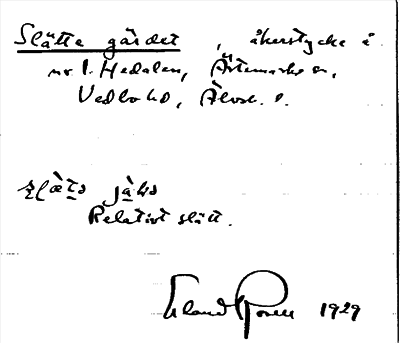 Slätta gärdet, åkerstycke å
nr 1. Hedalen, Ärtemarks sn,
Vedbo hd, Älvsb. l.
slæ̀ta jàḷs
Relativt slätt.
Erland Rosell 1929